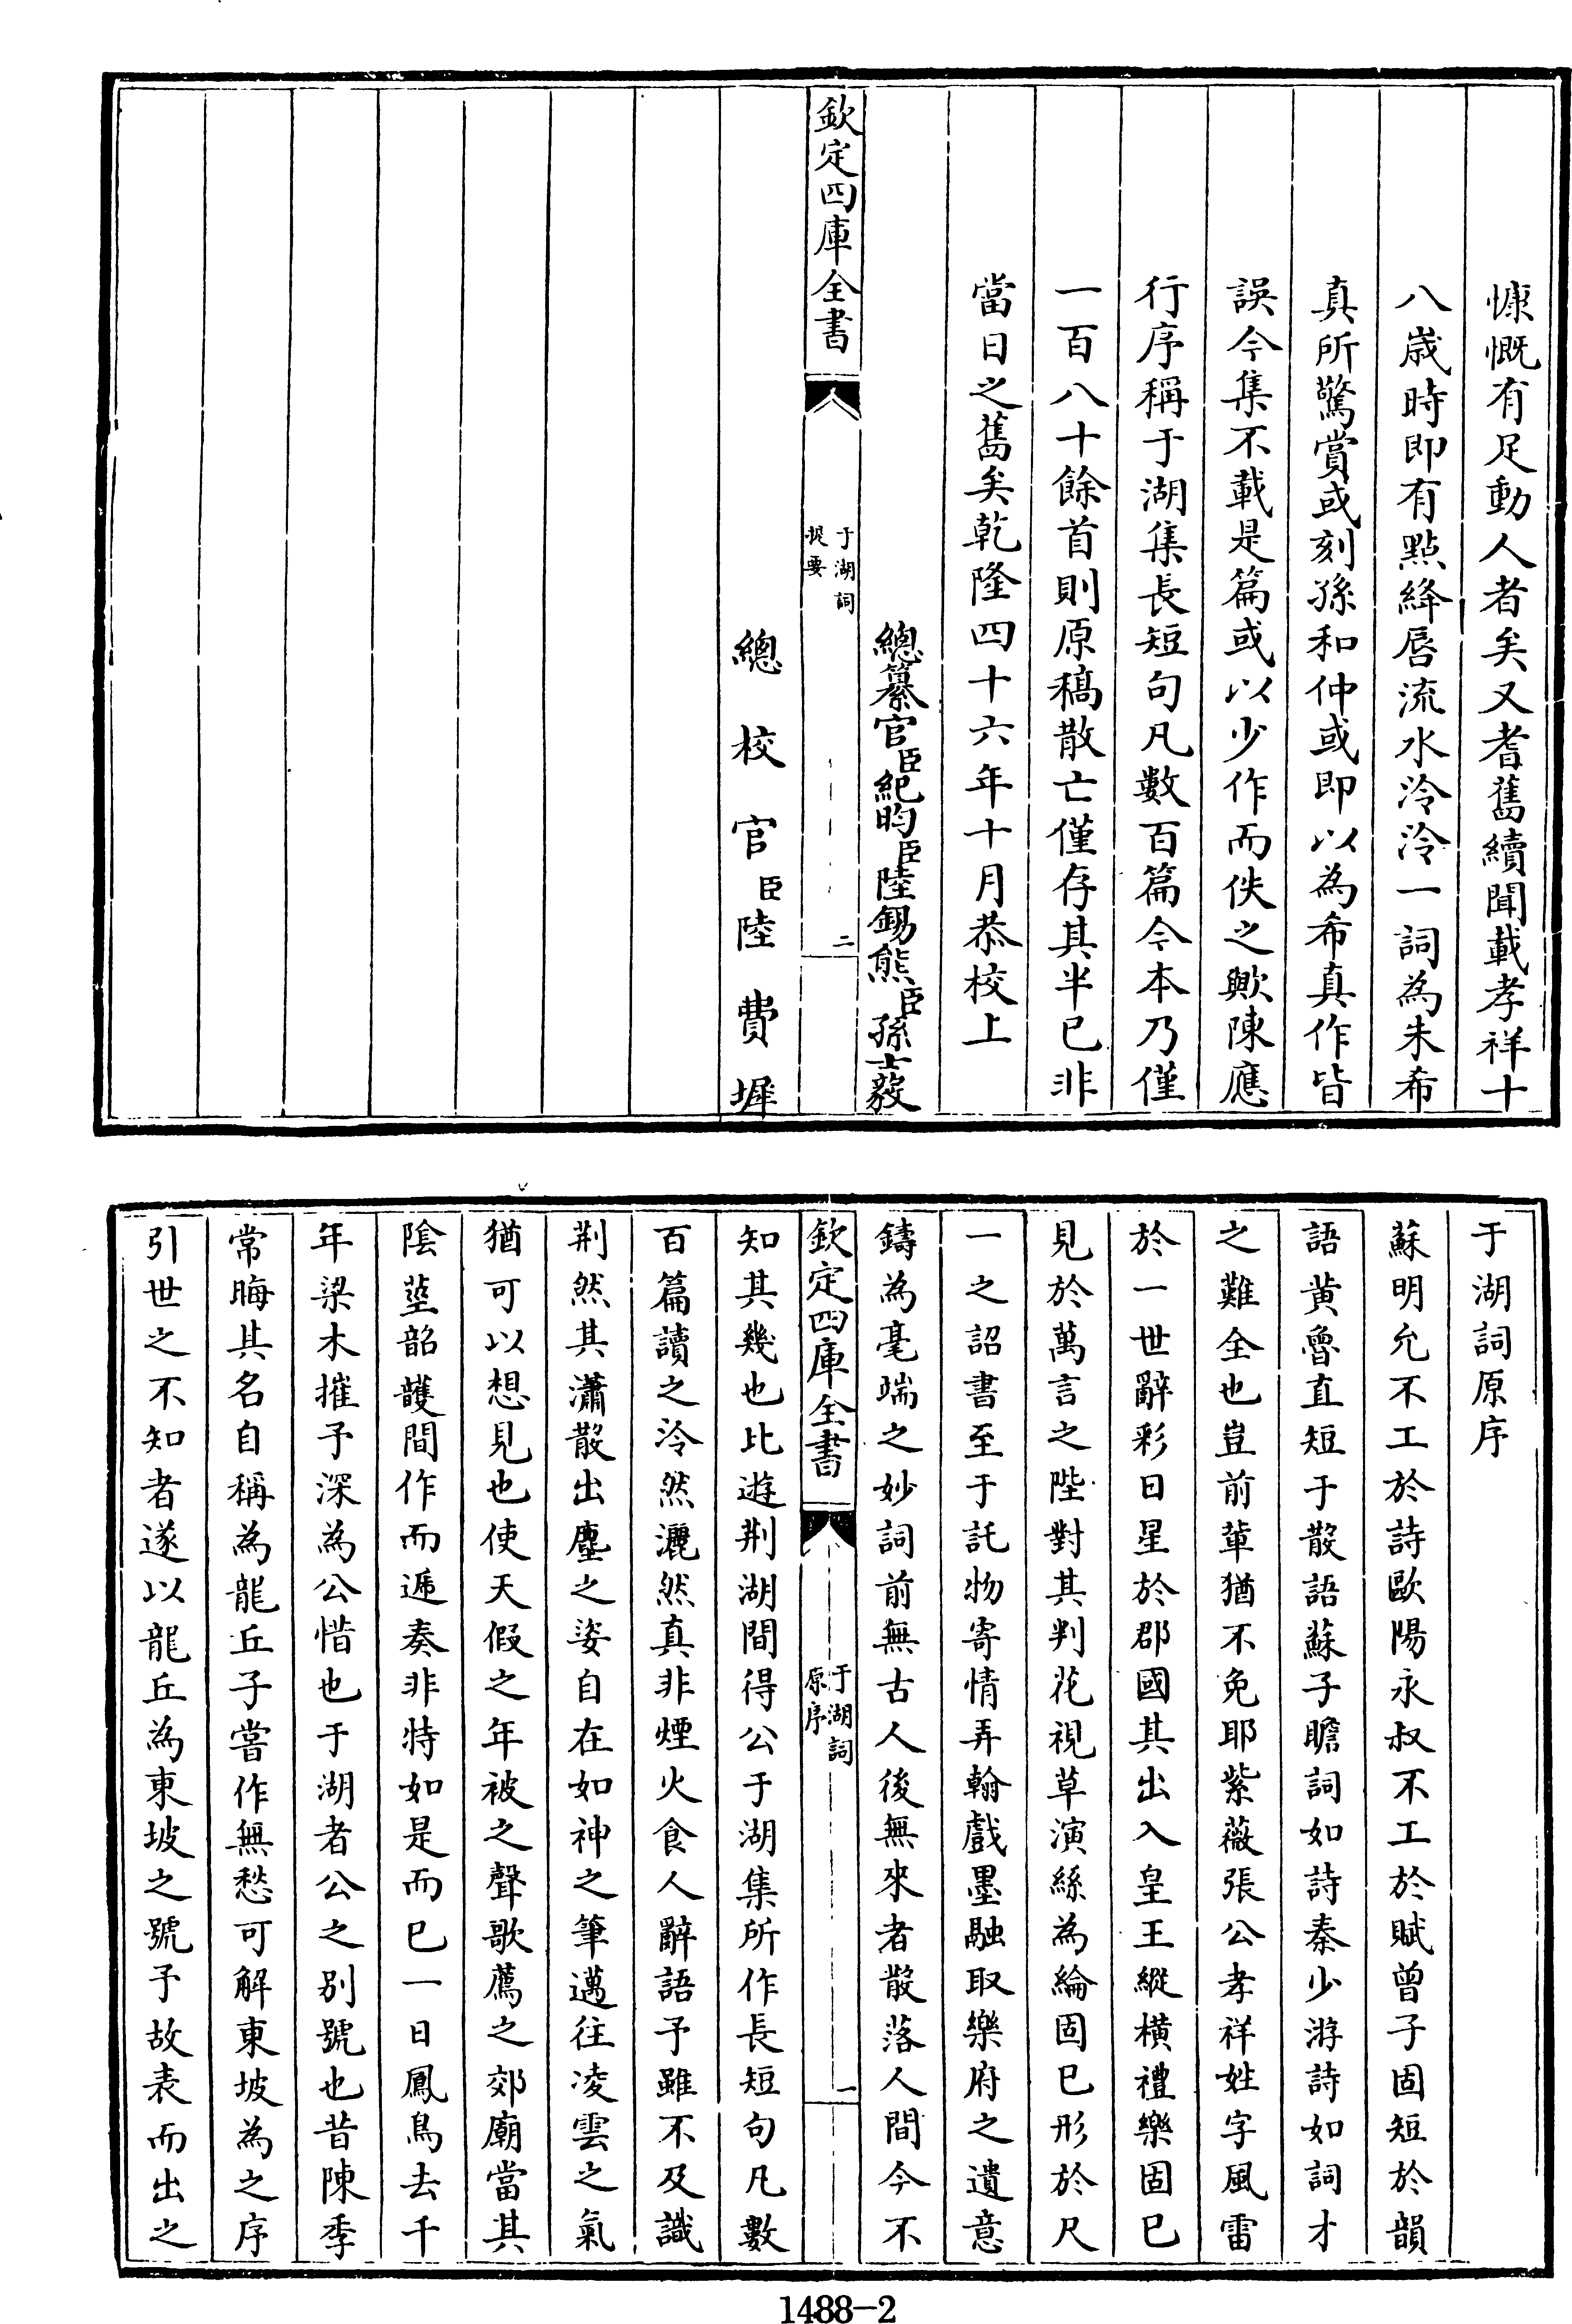 慷慨有足動人者矣又耆舊續聞載孝祥十
八歲時即有點絳唇流水泠泠一詞為朱希
真所驚賞或刻孫和仲或即以為希真作皆
誤今集不載是篇或以少作而佚之歟陳應
行序稱于湖集長短句凡數百篇今本乃僅
一百八十餘首則原稿散亡僅存其半已非
當日之舊矣乾隆四十六年十月恭校上
總纂官臣紀昀臣陸錫熊臣孫士毅
欽定四庫全書
于湖詞
提要
二
總校官臣陸費墀
于湖詞原序
蘇明允不工於詩歐陽永叔不工於賦曾子固短於韻
語黄魯直短于散語蘇子瞻詞如詩秦少游詩如詞才
之難全也豈前軰猶不免耶紫薇張公孝祥姓字風雷
於一世辭彩日星於郡國其出入皇王縱横禮樂固已
見於萬言之陛對其判花視草演絲為綸固已形於尺
一之詔書至于託物寄情弄翰戲墨融取樂府之遺意
鑄為毫端之妙詞前無古人後無來者散落人間今不
欽定四庫全書
于湖詞
原序
一
知其幾也比遊荆湖間得公于湖集所作長短句凡數
百篇讀之泠然灑然真非煙火食人辭語予雖不及識
荆然其瀟散出塵之姿自在如神之筆邁往凌雲之氣
猶可以想見也使天假之年被之聲歌薦之郊廟當其
陰莖韶頀間作而遞奏非特如是而已一日鳳鳥去千
年梁木摧予深為公惜也于湖者公之别號也昔陳季
常晦其名自稱為龍丘子嘗作無愁可解東坡為之序
引世之不知者遂以龍丘為東坡之號予故表而出之
1488-2